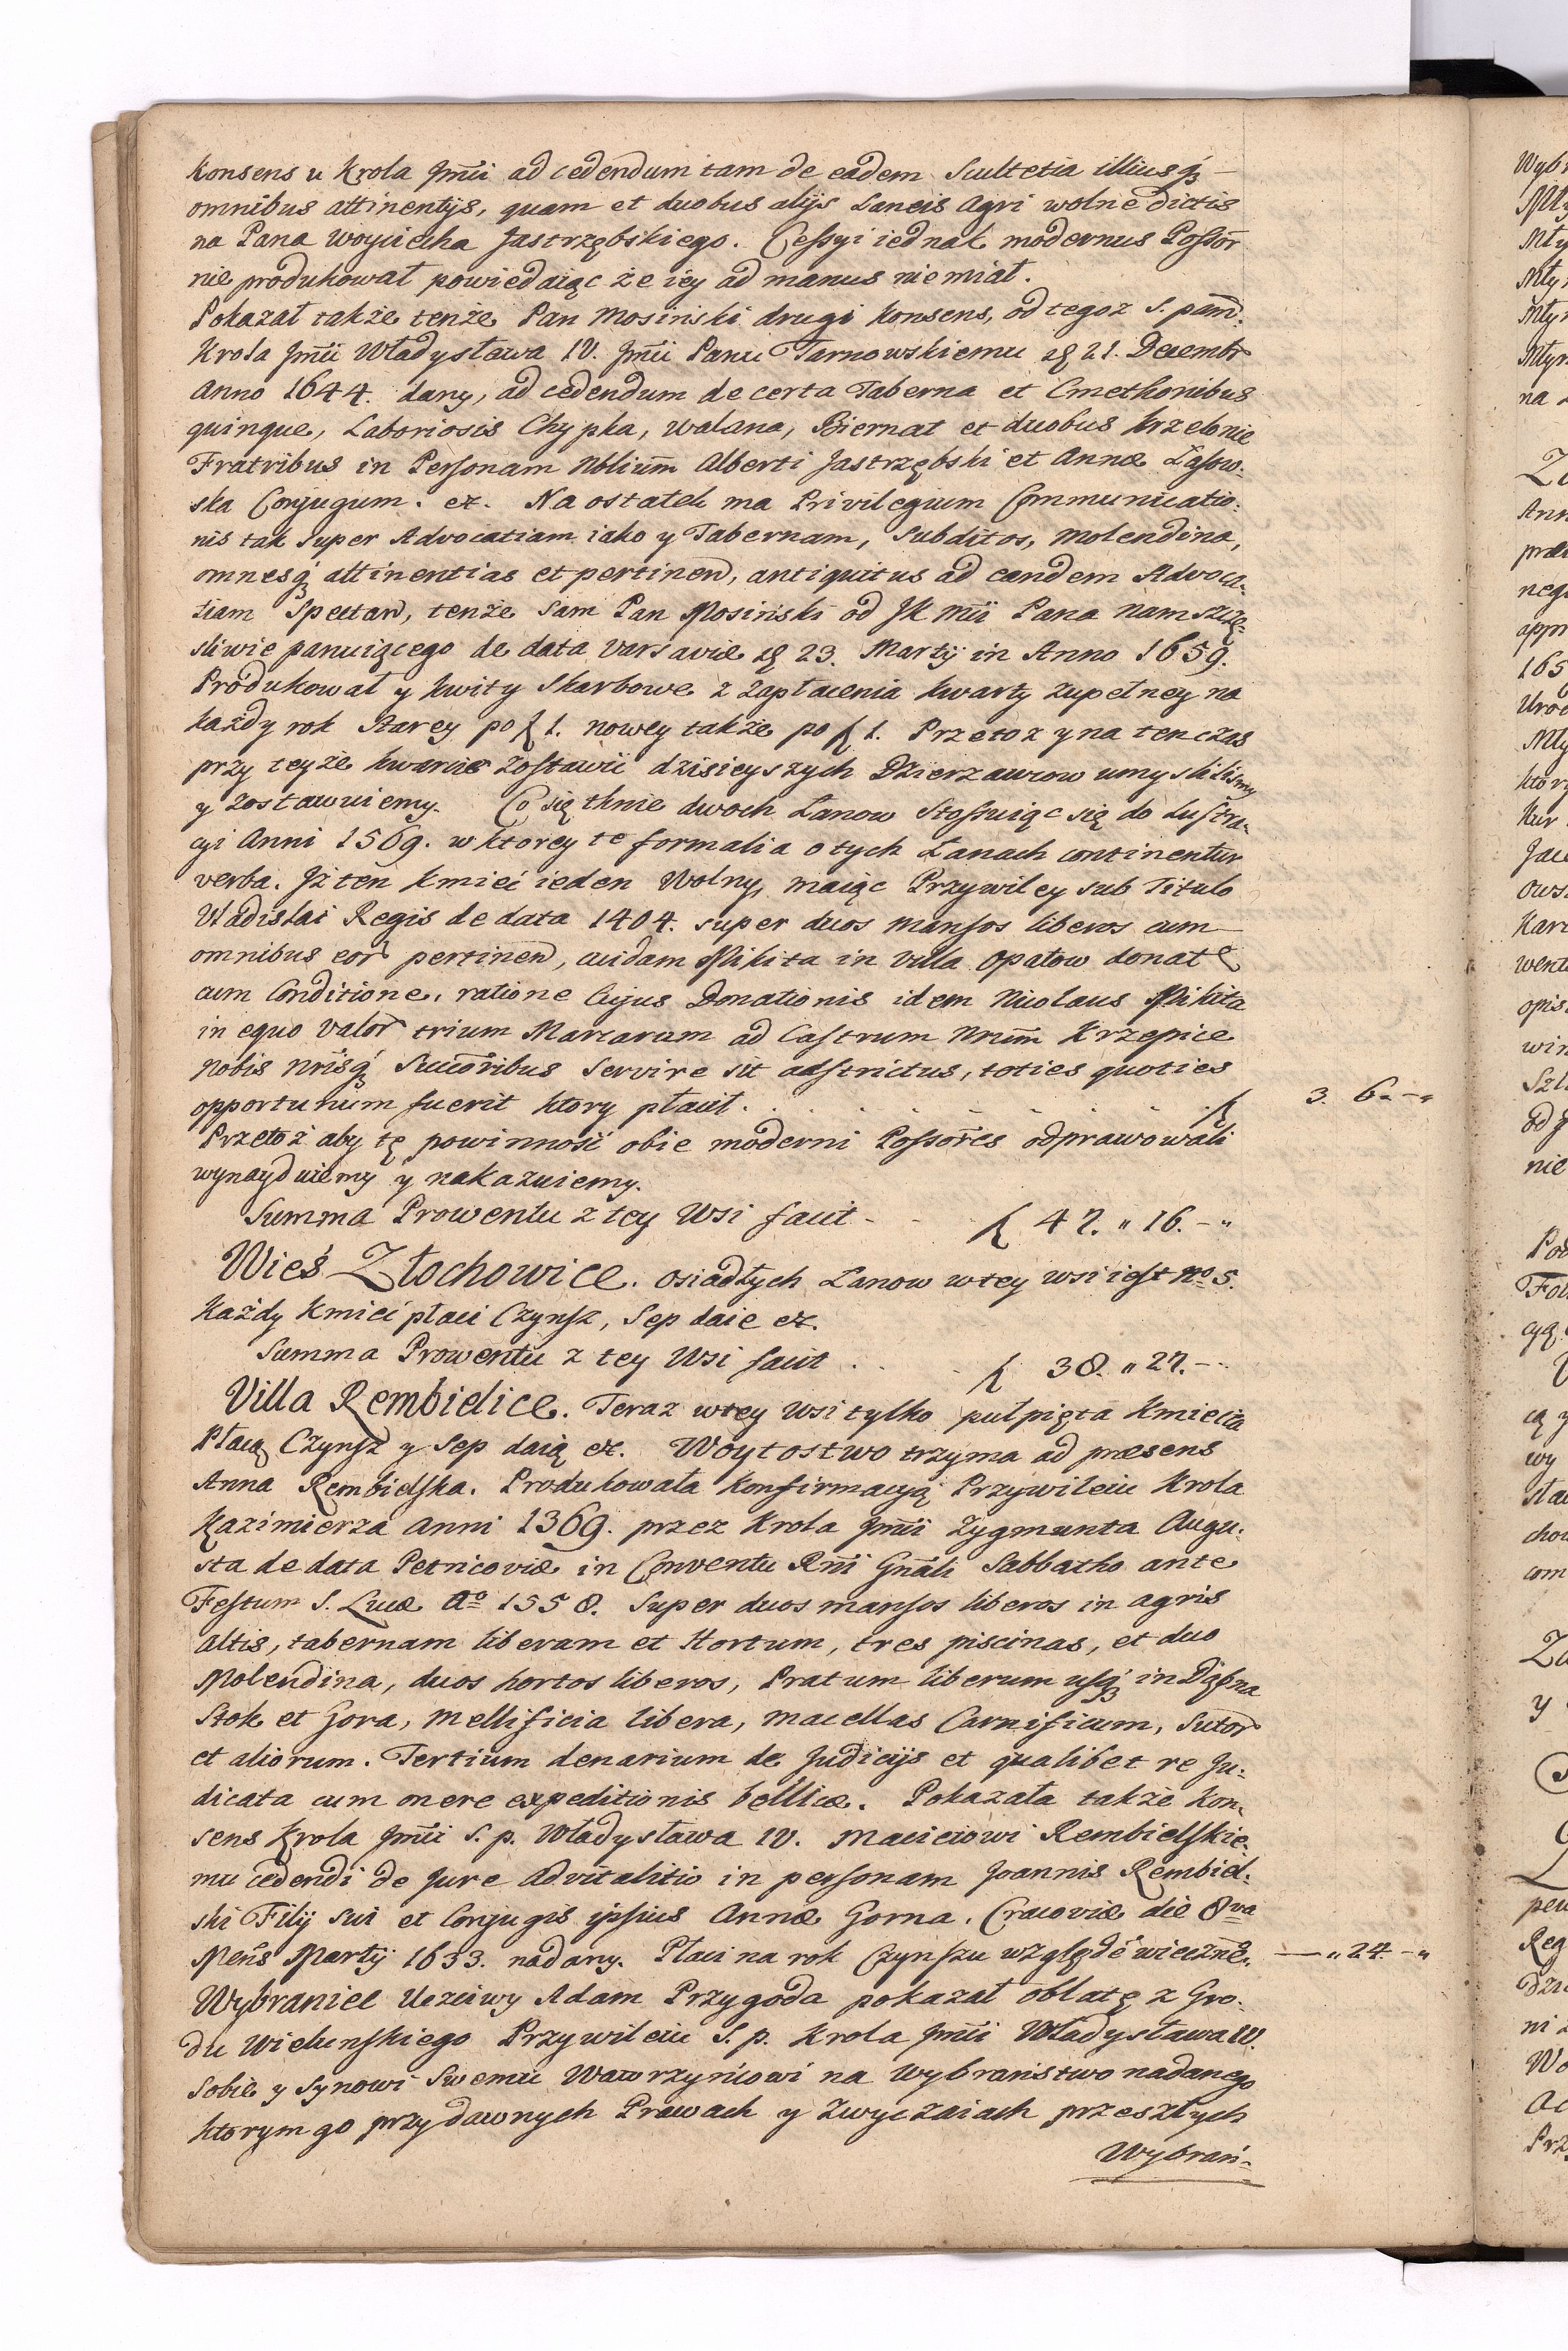 Konsens u Krola Jmći ad cedendum tam de eadem Scultetia illiusq́ꝫ
omnibus attinentijs, quam et duobus alijs Laneis Agri wolne dictis
na Pana Woyciecha Jastrzębskiego. Cessyi iednak modernus Possor̄
nie produkował powiedaiąc że iey ad manus nie miał.
Pokazał także tenże Pan Mosinski drugi Konsens, od tegoż S. pam̄:
Krola Jmći Władysława IV. Jmći Panu Tarnowskiemu 21. Decembr
Anno 1644. dany, ad cedendum de certa Taberna et Cmethonibus
quinque, Laboriosis Chypka, Walana, Biernat et duobus Krzebnie
Fratribus in Personam Nblium̄ Alberti Jastrzębski et Annæ Łąsow-
ska Conjugum. etc. Na ostatek ma Privilegium Communicatio-
nis tak super Advocatiam iako y Tabernam, Subditos, Molendina,
omnesq́ꝫ attinentias et pertinen, antiquitus ad eandem Advoca-
tiam Spectan, tenże sam Pan Mosinski od JK Mći Pana Nam szczę-
śliwie panuiącego de data Varsaviæ 23. Martij in Anno 1659.
Produkował y kwity Skarbowe z zapłacenia kwarty zupełney na
każdy rok Starey po f 1. nowey także po f 1. Przetoż y na ten czas
przy teyże kwarcie zostawić dzisieyszych Dzierzawcow umyślilismy
y zostawuiemy. Co się tknie dwoch Lanow Stosuiąc się do Lustra-
cyi Anni 1569. w ktorey te formalia o tych Łanach continentur
verba. Jż ten Kmieć ieden Wolny, maiąc Przywiley sub Titulo
Vladislai Regis de data 1404. super duos mansos liberos cum
omnibus eor pertinen, cuidam Mikita in villa Opatow donat
cum Conditione, ratione Cujus Donationis idem Nicolaus Mikita
in equo valor̄ trium Marcarum ad Castrum Nrum̄ Krzepice
nobis nrisq́ꝫ Succōribus Servire sit adstrictus, toties quoties
opportunum fuerit ktory płacił. . . . . . . f 3. 6 - "
Przetoż aby tę powinność obie moderni Possores odprawowali
wynayduiemy y nakazuiemy.
Summa Prowentu z tey Wsi facit - - f 47. " 16. - "
Wieś Złochowice. osiadłych Lanow w tey wsi iest No 5.
Każdy Kmieć płaci Czynsz, Sep daie etc.
Summa Prowentu z tey Wsi facit . . - f 38. " 27. - "
Villa Rembielice. Teraz w tey Wsi tylko pułpięta Kmiecia
Płacą Czynsz y Sep daią etc. Woytostwo trzyma ad præsens
Anna Rembielska. Produkowała Konfirmacyą Przywileiu Krola
Kazimierza Anni 1369. przez Krola Jmći Zygmunta Augu-
sta de data Petricoviæ in Conventu Rni Gnāli Sabbatho ante
Festum S. Lucæ Ao 1558. Super duos mansos liberos in agris
altis, tabernam liberam et Hortum, tres piscinas, et duo
Molendina, duos hortos liberos, Pratum liberum usq́ꝫ in Dąbrza
Stok et Gora, Mellificia libera, macellas Carnificum, Sutor
et aliorum. Tertium denarium de Judicijs et qualibet re Ju-
dicata cum onere expeditionis bellicæ. Pokazała także Kon-
sens Krola Jmći S. p. Władysława IV. Macieiowi Rembielskie-
mu cedendi de Jure Advitalitio in personam Joannis Rembiel-
ski Filij sui et Conjugis ipsius Annæ Gorna. Cracoviæ die 8va
Mens̄ Martij 1633. nadany. Płaci na rok Czynszu względē wieczne. — " 24. - "
Wybraniec Uczciwy Adam Przygoda pokazał oblatę z Gro-
du Wielunskiego Przywileiu S. p. Krola Jmći Władysława IV.
Sobie y Synowi Swemu Wawrzyńcowi na Wybraństwo nadanego
ktorym go przy dawnych Prawach y Zwyczaiach przeszłych
Wybrań-